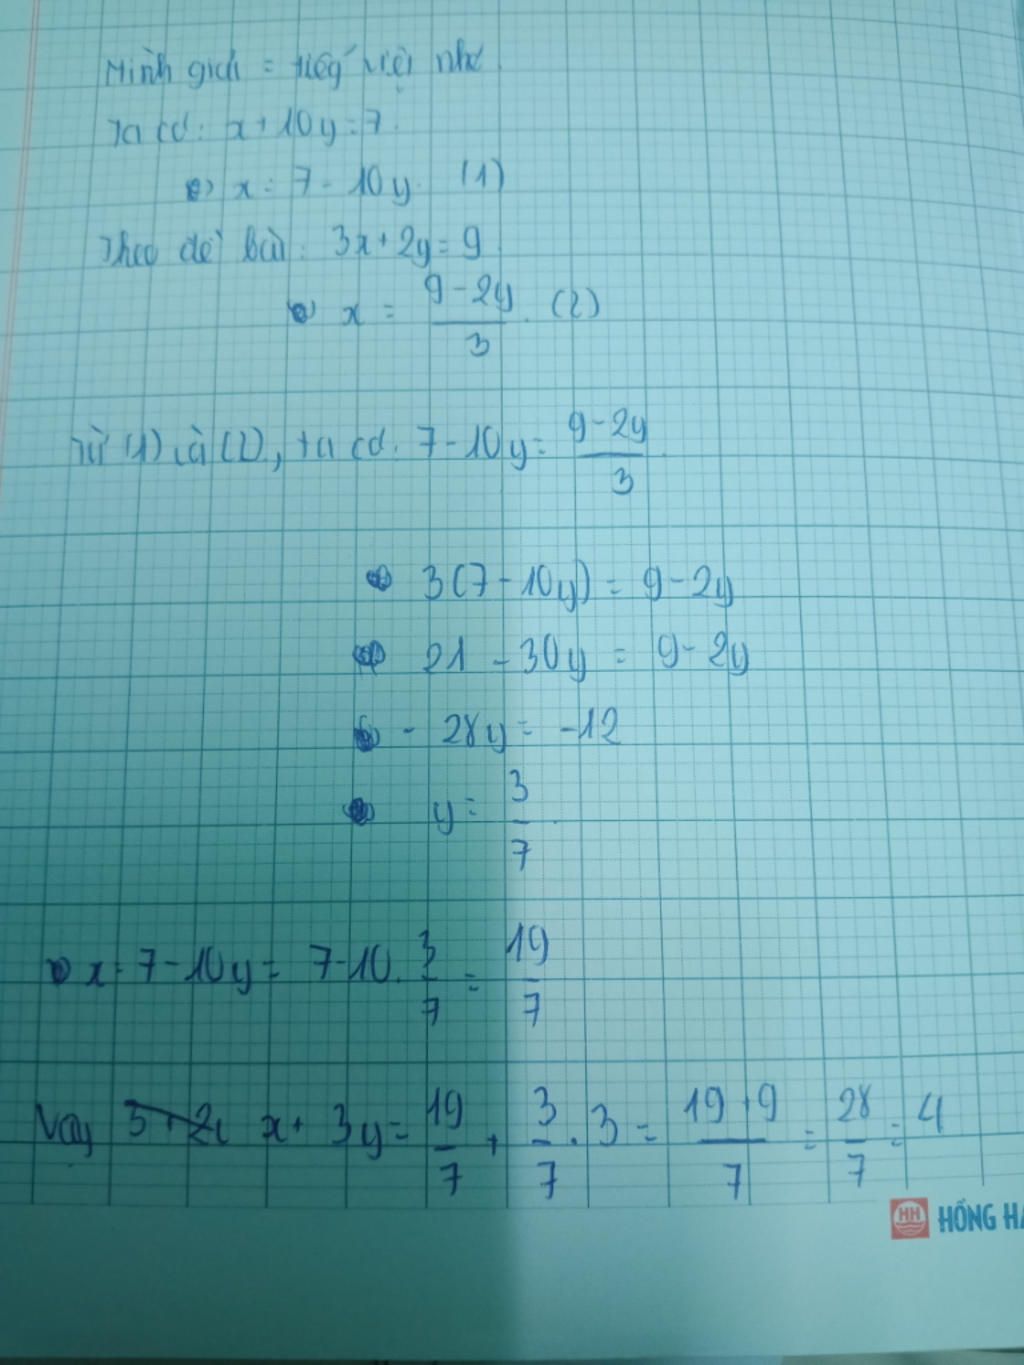 Mình giải = tiếng việt nhé
Ta có: x + 10y = 7.
⇔ x = 7 - 10y. (1)
Theo đề bài: 3x + 2y = 9
x = \frac{9 - 2y}{3}. (2)
Từ (1) và (2), ta có: 7 - 10y = \frac{9 - 2y}{3}
3(7 - 10y) = 9 - 2y
21 - 30y = 9 - 2y
- 28y = -12
y = \frac{3}{7}
x = 7 - 10y = 7 - 10 . \frac{3}{7} = \frac{19}{7}
Vậy x + 3y = \frac{19}{7} + \frac{3}{7} . 3 = \frac{19 + 9}{7} = \frac{28}{7} = 4
HH HỒNG HA